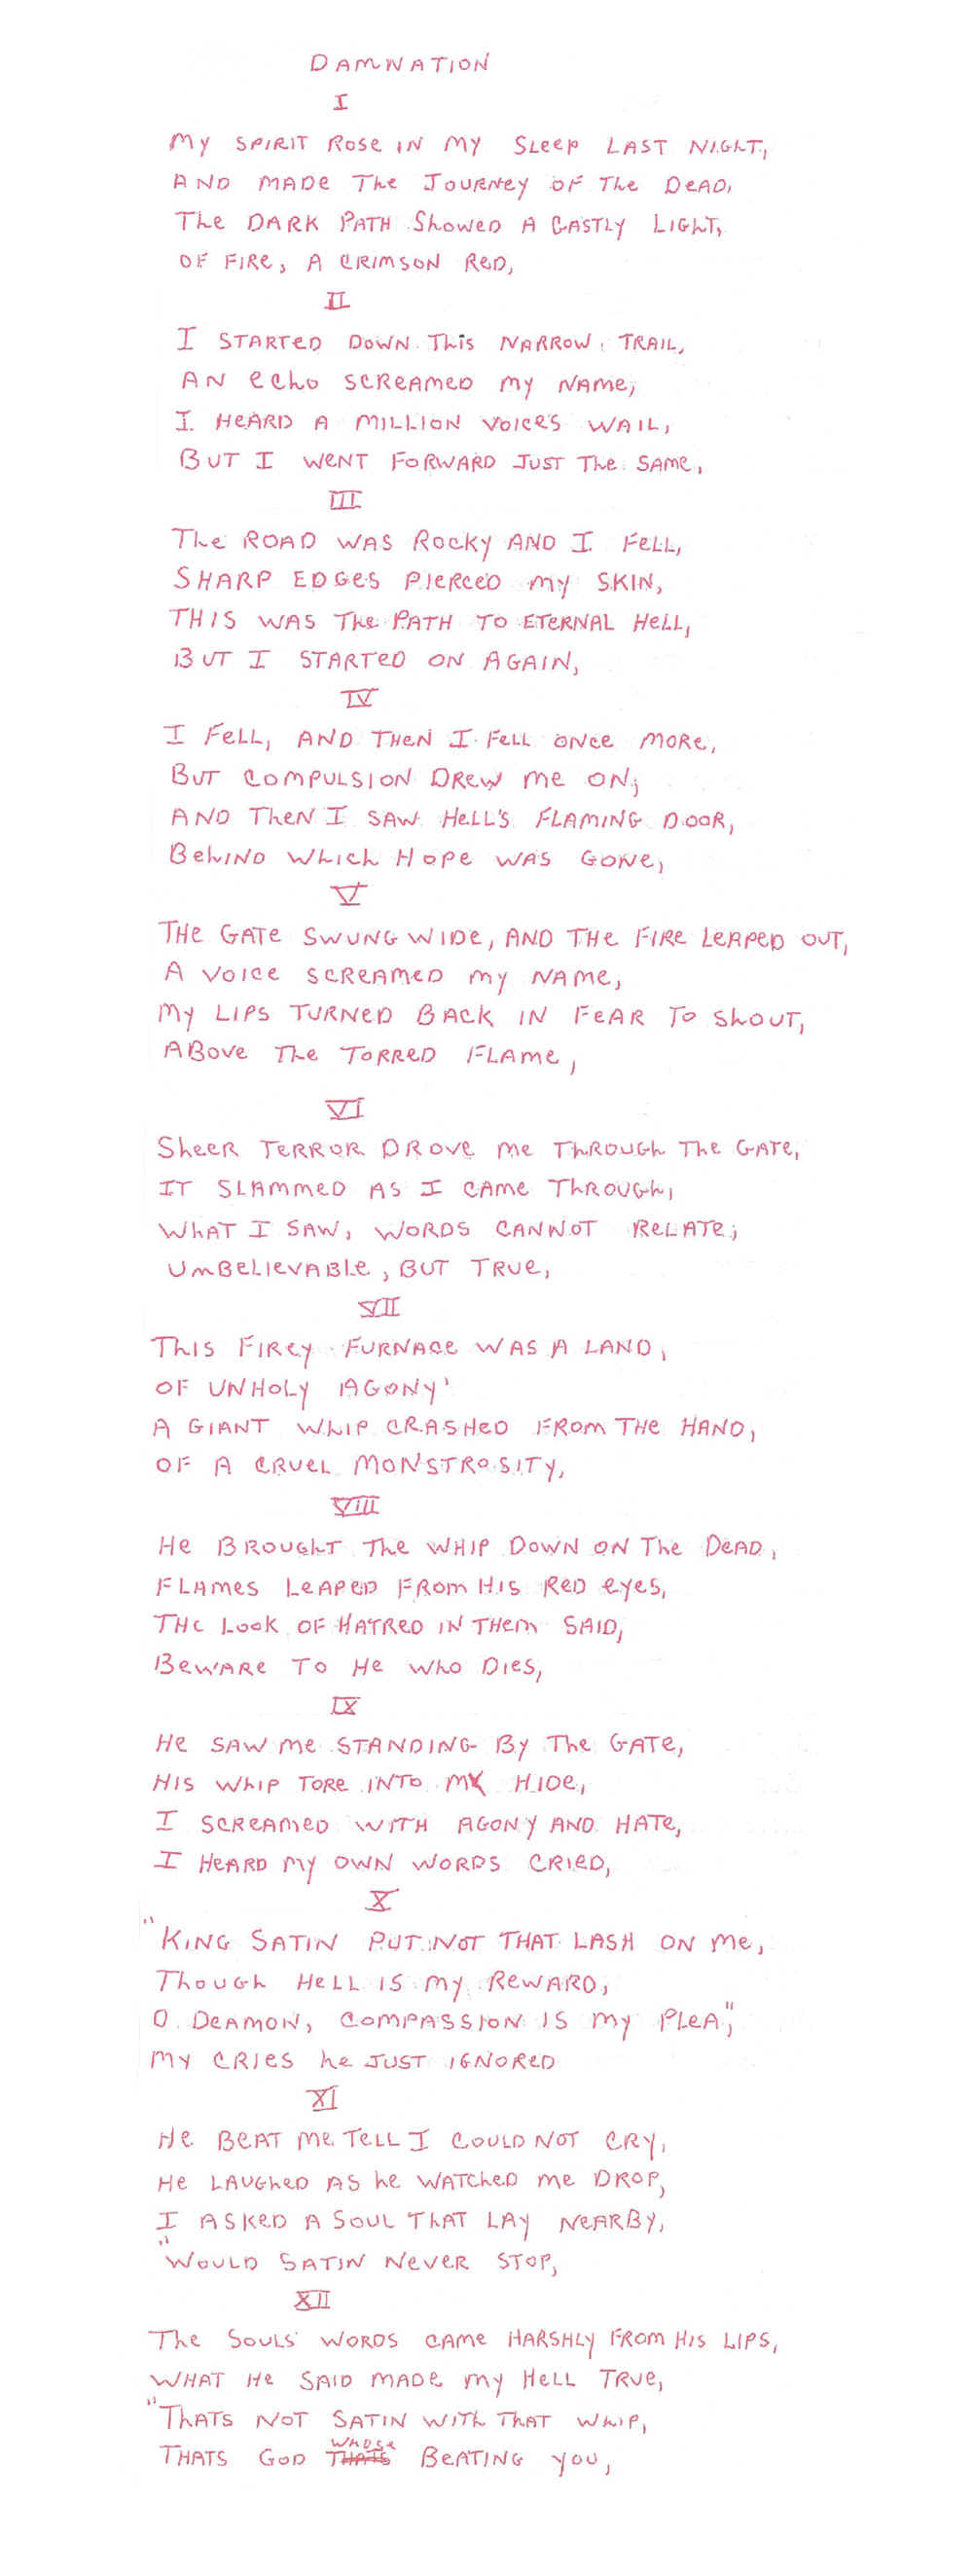 DAMNATION
I
MY SPIRIT ROSE IN MY SLEEP LAST NIGHT,
AND MADE THE JOURNEY OF THE DEAD,
THE DARK PATH SHOWED A GASTLY LIGHT,
OF FIRE, A CRIMSON RED,
II
I STARTED DOWN THIS NARROW TRAIL,
AN ECHO SCREAMED MY NAME,
I HEARD A MILLION VOICES WAIL,
BUT I WENT FORWARD JUST THE SAME,
III
THE ROAD WAS ROCKY AND I FELL,
SHARP EDGES PIERCED MY SKIN,
THIS WAS THE PATH TO ETERNAL HELL,
BUT I STARTED ON AGAIN,
IV
I FELL, AND THEN I FELL ONCE MORE,
BUT COMPULSION DREW ME ON;
AND THEN I SAW HELL'S FLAMING DOOR,
BEHIND WHICH HOPE WAS GONE,
V
THE GATE SWUNG WIDE, AND THE FIRE LEAPED OUT,
A VOICE SCREAMED MY NAME,
MY LIPS TURNED BACK IN FEAR TO SHOUT,
ABOVE THE TORRED FLAME,
VI
SHEER TERROR DROVE ME THROUGH THE GATE,
IT SLAMMED AS I CAME THROUGH,
WHAT I SAW, WORDS CANNOT RELATE;
UNBELIEVABLE, BUT TRUE,
VII
THIS FIREY FURNACE WAS A LAND,
OF UNHOLY AGONY'
A GIANT WHIP CRASHED FROM THE HAND,
OF A CRUEL MONSTROSITY,
VIII
HE BROUGHT THE WHIP DOWN ON THE DEAD,
FLAMES LEAPED FROM HIS RED EYES,
THE LOOK OF HATRED IN THEM SAID,
BEWARE TO HE WHO DIES,
IX
HE SAW ME STANDING BY THE GATE,
HIS WHIP TORE INTO MY HIDE,
I SCREAMED WITH AGONY AND HATE,
I HEARD MY OWN WORDS CRIED,
X
"KING SATIN PUT NOT THAT LASH ON ME,
THOUGH HELL IS MY REWARD,
O DEAMON, COMPASSION IS MY PLEA",
MY CRIES HE JUST IGNORED
XI
HE BEAT ME TELL I COULD NOT CRY,
HE LAUGHED AS HE WATCHED ME DROP,
I ASKED A SOUL THAT LAY NEARBY,
"WOULD SATIN NEVER STOP,
XII
THE SOULS WORDS CAME HARSHLY FROM HIS LIPS,
WHAT HE SAID MADE MY HELL TRUE,
"THATS NOT SATIN WITH THAT WHIP,
THATS GOD WHOSE BEATING YOU,